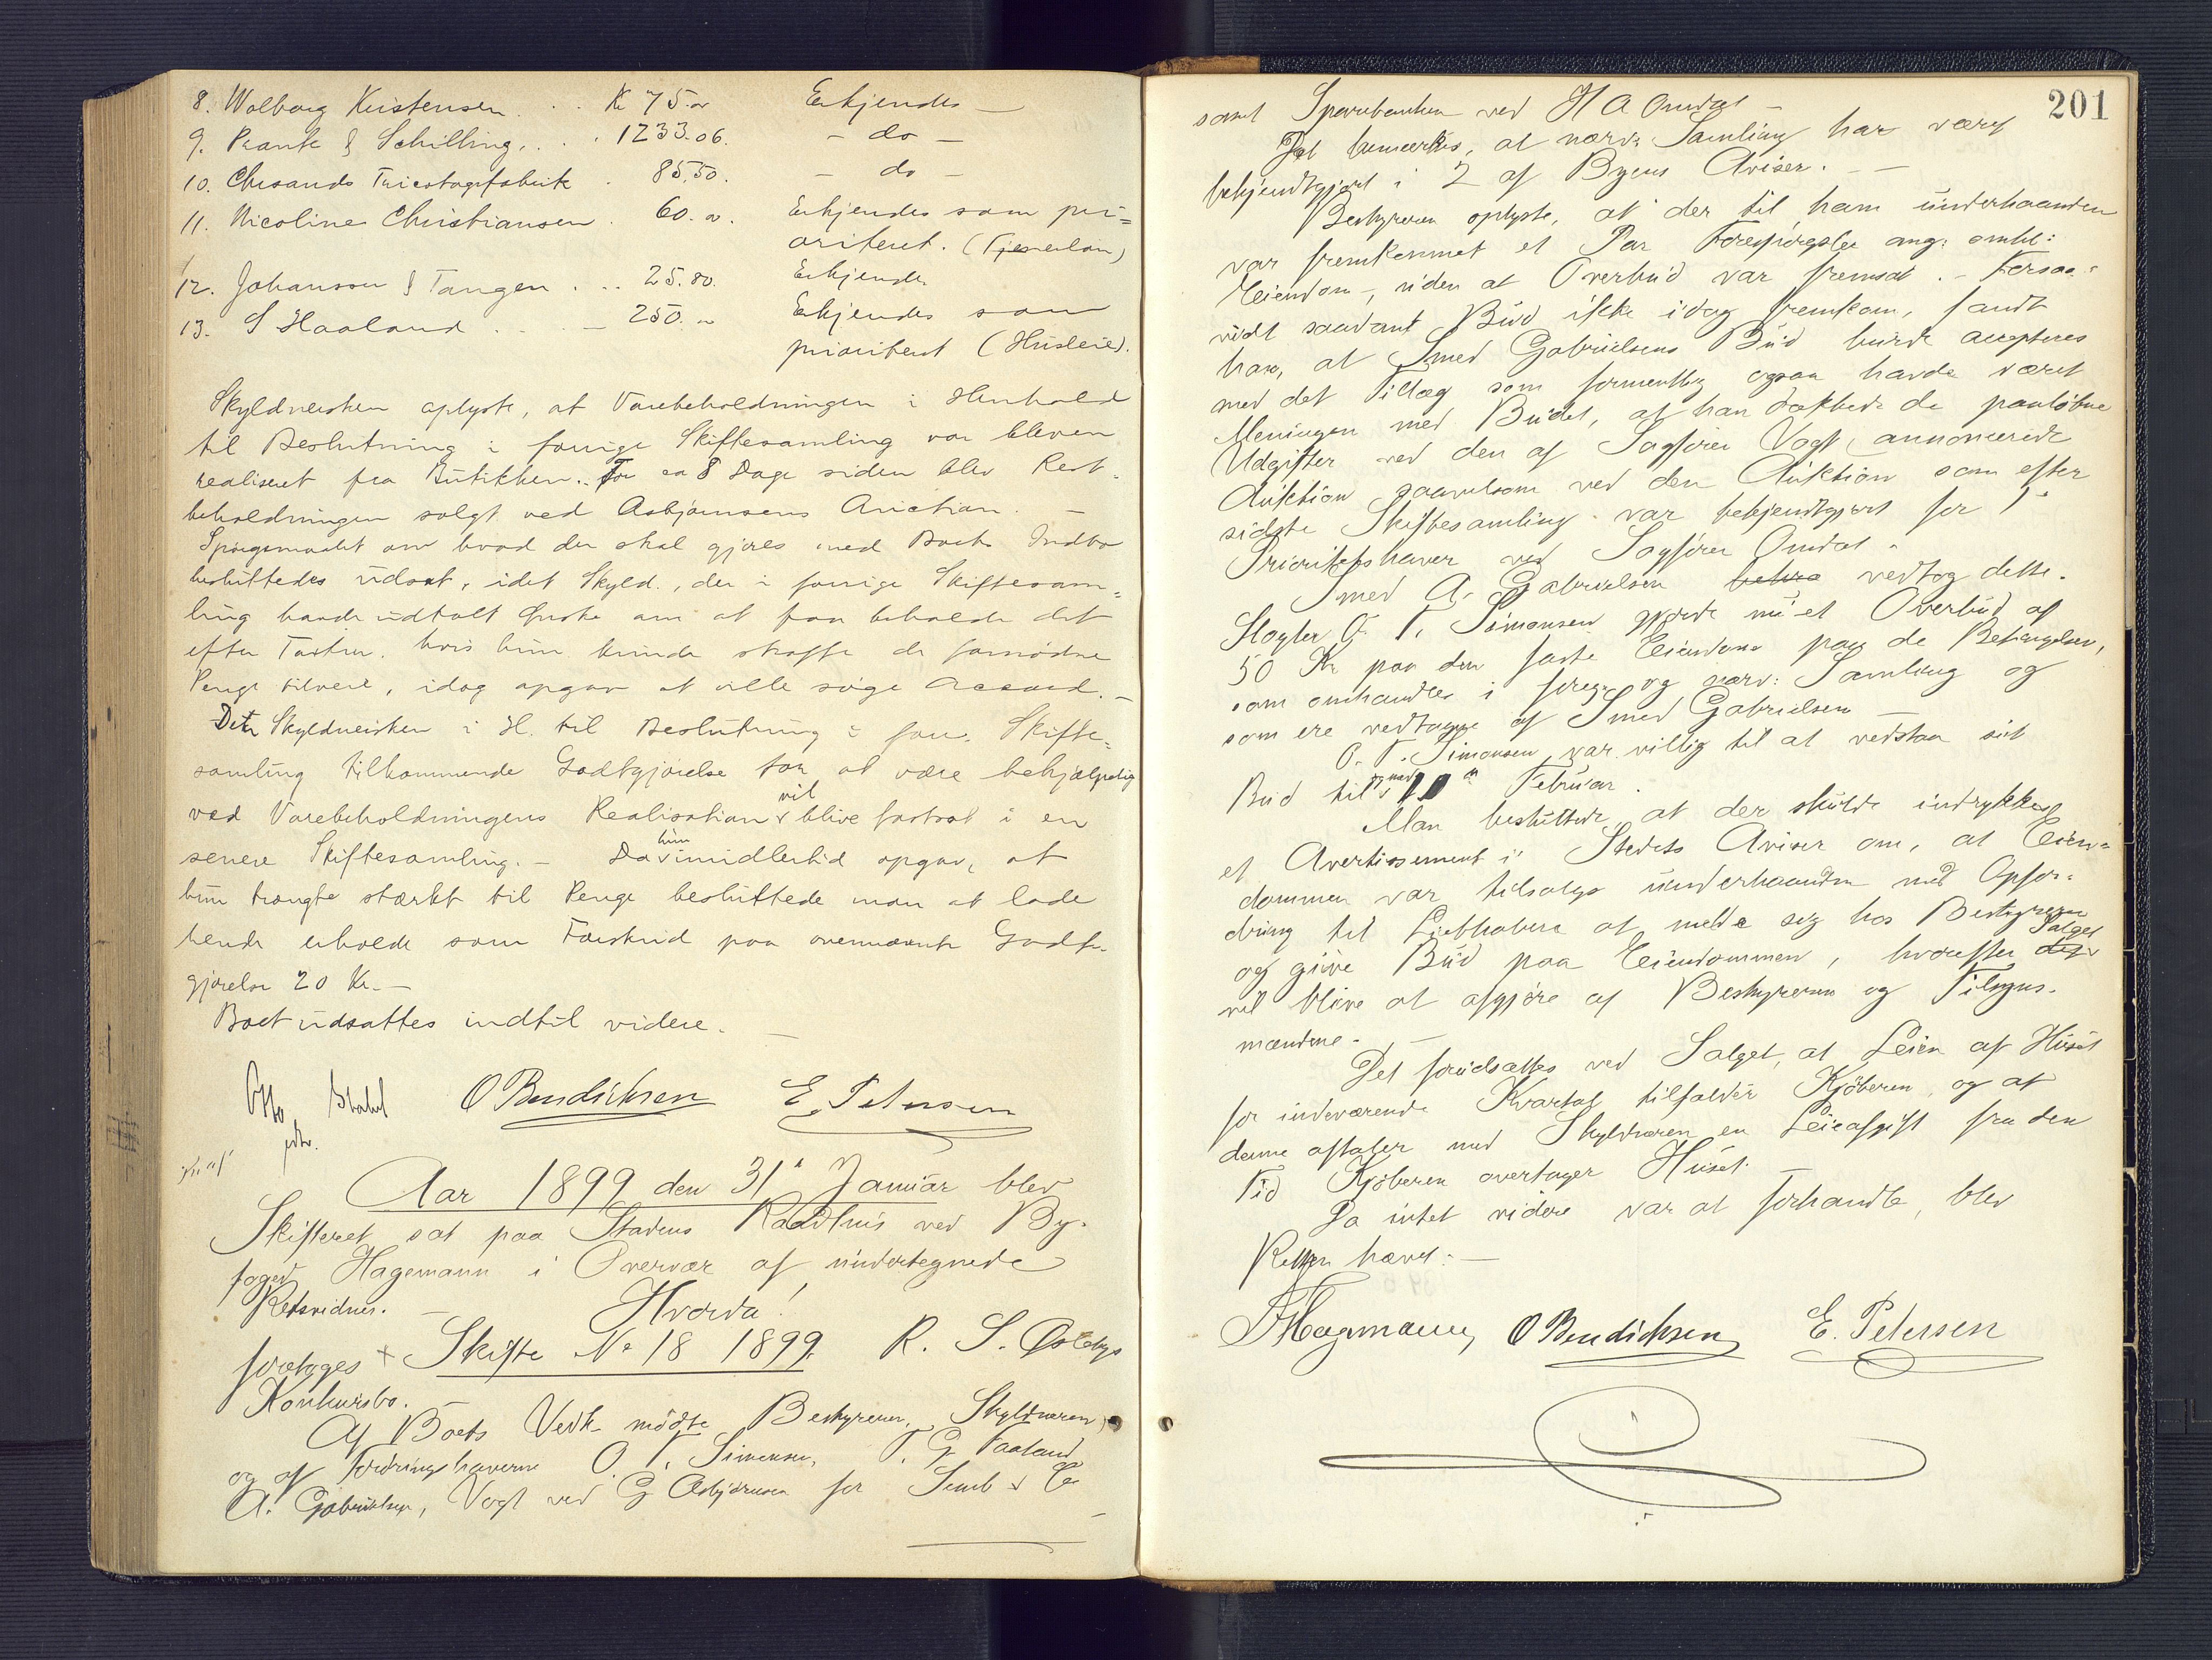 8. Walborg Kristensen . . . Kr 75.00 Erkjendes —
9. Krantz & Schilling . . . 1233.06. — do —
10. Chrsands Tricotagefabrik . 85.50. — do —
11. Nicoline Christiansen . 60. 00. Erkjendes som pri=
oritetet. (Tjenerløn)
12. Johansen & Tangen . . . 25.80. Erkjendes
13. S Haaland . . . — 250. 00 Erkjendes som
prioritert (Husleie).
Skyldnersken oplyste, at Varebeholdningen i Henhold
til Beslutning i forrige Skiftesamling var bleven
realiseret fra Butikken. For ca 8 Dage siden blev Rest-
beholdningen solgt ved Asbjørnsens Auction. —
Spørgsmaalet om hvad der skal gjøres med Boets Indbo
besluttedes udsat, idet Skyld., der i forrige Skiftesam=
ling havde udtalt Ønske om at faa beholde det
efter Taxten, hvis hun kunde skaffe de fornødne
Penge tilveie, idag opgav at ville søge Accord. —
Den Skyldnersken i H. til Beslutning i forr. Skifte=
samling tilkommende Godtgjørelse for at være behjælpelig
ved Varebeholdningens Realisation vil blive fastsat i en
senere Skiftesamling. — Da hun imidlertid opgav, at
hun trængte stærkt til Penge besluttede man at lade
hende erholde som Forskud paa ovennævnte Godt-
gjørelse 20 Kr. —
Boet udsattes indtil videre. —
Otto Stabel O Bendichsen E. Petersen
Aar 1899 den 31te Januar blev
Skifteret sat paa Stadens Raadhus ved By-
foged Hagemann i Overvær af undertegnede
Retsvidner. — Hvorda!
foretoges + Skifte No 18 1899. R. S. Østebys
Konkursbo.
Af Boets Vedk. mødte Bestyreren, Skyldneren,
og af Fordringshaverne O. T. Simonsen, T. G. Faaland
A. Gabrielsen, Vogt ved G Asbjørnsen for Semb & Co
201
samt Sparebanken ved H A Omdal —
Det bemærkes, at nærv. Samling har været
bekjendtgjort i 2 af Byens Aviser. —
Bestyreren oplyste, at der til ham underhaanden
var fremkommet et Par Forespørgsler ang: omhl:
Eiendom, uden at Overbud var fremsat. — Forsaa-
vidt saadant Bud ikke idag fremkom, fandt
han, at Smed Gabrielsens Bud burde accepteres
med det Tillæg som formentlig ogsaa havde været
Meningen med Budet, at han dækkede de paaløbne
Udgifter ved den af Sagfører Vogt annoncerede
Auktion saavelsom ved den Auktion som efter
sidste Skiftesamling var bekjendtgjort for 1ste
Prioritetshaver ved Sagfører Omdal.
Smed A. Gabrielsen vedtog dette.
Slagter O. T. Simonsen gjorde nu et Overbud af
50 Kr paa den faste Eiendom paa de Betingelser,
som omhandles i foreg. og nærv: Samling og
som ere vedtagne af Smed Gabrielsen —
O. T. Simonsen var villig til at vedstaa sit
Bud til og med 10de Februar.
Man besluttede, at der skulde indrykkes
et Avertissement i Stedets Aviser om, at Eien=
dommen var tilsalgs underhaanden med Opfor-
dring til Liebhabere at melde sig hos Bestyreren
og give Bud paa Eiendommen, hvorefter Salget
vil blive at afgjøre af Bestyreren og Tilsyns-
mændene. —
Det forudsættes ved Salget, at Leien af Huset
for indeværende Kvartal tilfalder Kjøberen, og at
denne aftaler med Skyldneren en Leieafgift fra den
Tid Kjøberen overtager Huset. —
Da intet videre var at forhandle, blev
Retten hævet. —
Hagemann O Bendichsen E. Petersen